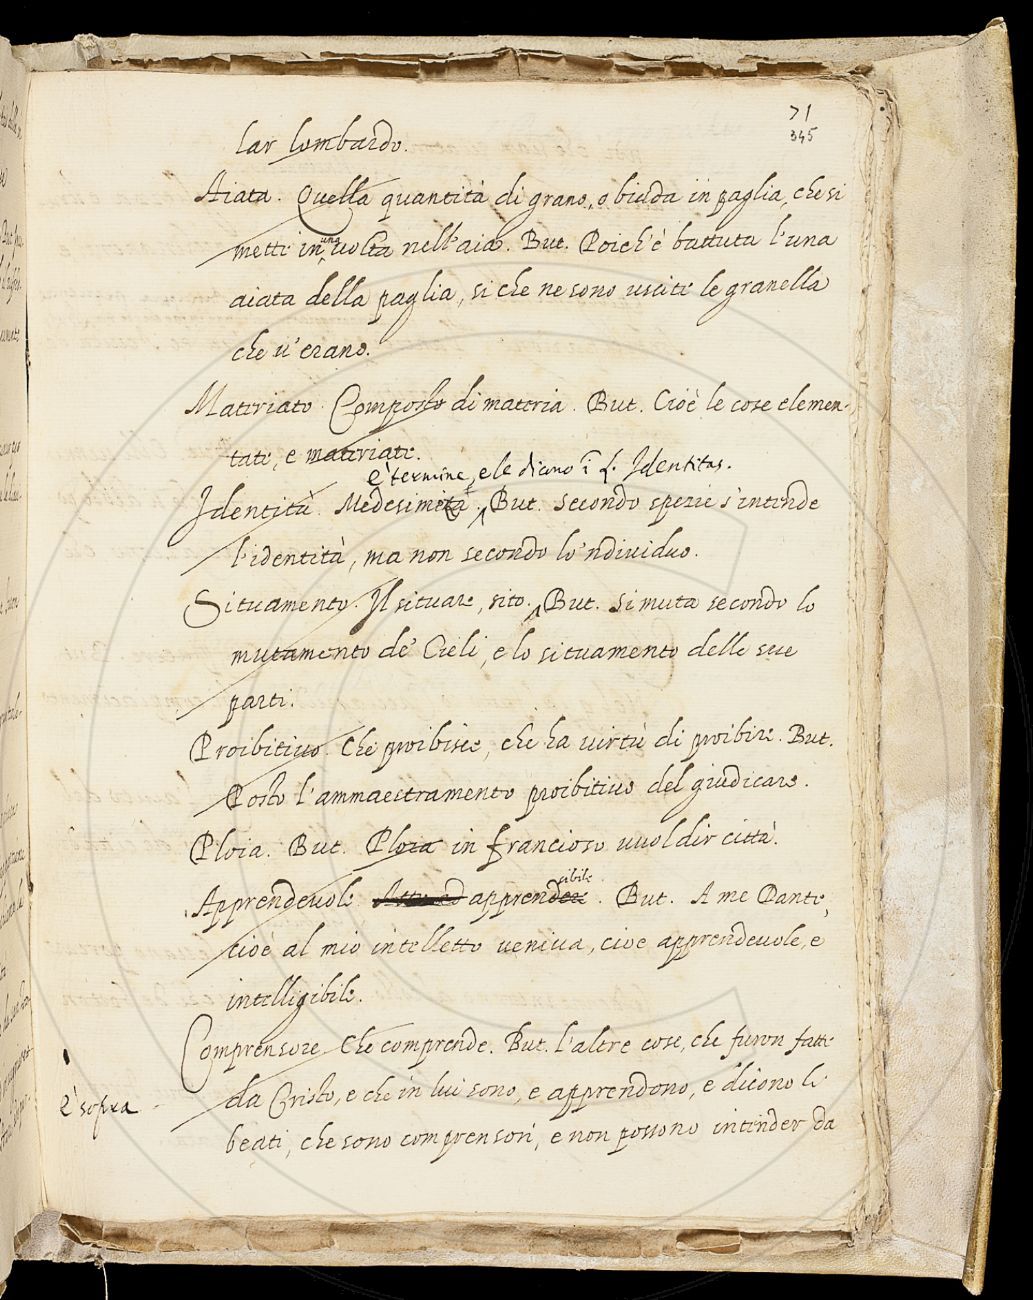 71
345
lar lombardo.
Aiata. Quella quantità di grano, o biada in paglia, che si
mette in una volta nell'aia. But. Poich'è battuta l'una
aiata della paglia, si che ne sono uscite le granella
che v'erano.
Materiato. Composto di materia. But. Cioè le cose elemen-
tate, e materiate.
è termine, e le dicono ī L. Identitas.
Identità. Medesimità. But. Secondo spezie s'intende
l'identità, ma non secondo lo 'ndividuo.
Situamento. Il situare, sito. But. Si muta secondo lo
mutamento de' Cieli, e lo situamento delle sue
parti.
Proibitivo. Che proibisce, che ha virtù di proibire. But.
Posto l'ammaestramento proibitivo del giudicare.
Ploia. But. Ploia in francioso vuol dir città.
Apprendevole apprensibile. But. A me Dante,
cioè al mio intelletto veniva, cioè apprendevole, e
intelligibile.
Comprensore. Che comprende. But. l'altre cose, che furon fatte
è sopra
da Cristo, e che in lui sono, e apprendono, e dicono li
beati, che sono comprensori, e non possono intender da